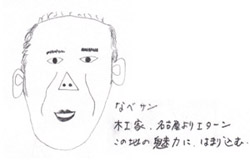 なべサン
木工家、名古屋よりIターン
この地の魅力に、はまり込む…